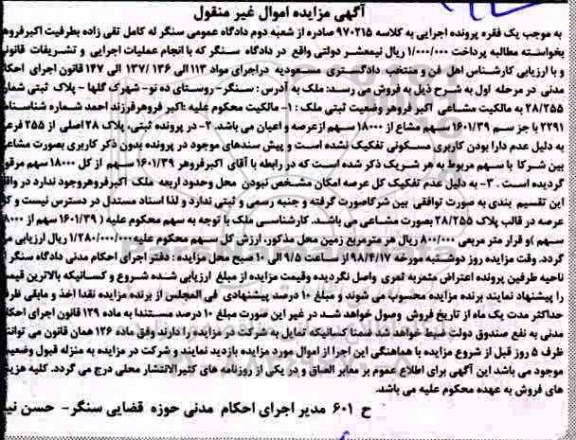 آگهی مزایده اموال غیر منقول
به موجب یک فقره پرونده اجرایی به کلاسه ۹۷۰۲۱۵ صادره از شعبه دوم دادگاه عمومی سنگر له کامل تقی زاده بطرفیت اکبرفروهر
بخواسته مطالبه پرداخت ۱/۰۰۰/۰۰۰ ریال نیمعشر دولتی واقع در دادگاه سنگر که با انجام عملیات اجرایی و تشریفات قانونی
و با ارزیابی کارشناس اهل فن و منتخب دادگستری مسعودیه دراجرای مواد ۱۱۳ الی ۱۳۶ /۱۳۷ الی ۱۴۷ قانون اجرای احکام
مدنی در مرحله اول به شرح ذیل به فروش می رسد: ملک به آدرس : سنگر- روستای ده نو- شهرک گلها - پلاک ثبتی شماره
۲۸/۲۵۵ به مالکیت مشاعی اکبر فروهر وضعیت ثبتی ملک : ۱- مالکیت محکوم علیه :اکبر فروهرفرزند احمد شماره شناسنامه
۲۲۹۱ با جز سهم ۱۶۰۱/۳۹ سهم مشاع از ۱۸۰۰۰ سهم ازعرصه و اعیان می باشد. ۲- در پرونده ثبتی، پلاک ۲۸ اصلی از ۲۵۵ فرعی
به دلیل عدم دارا بودن کاربری مسکونی تفکیک نشده است و پیش سندهای موجود در پرونده بدون ذکر کاربری بصورت مشاعی
بین شرکا با سهم مربوط به هر شریک ذکر شده است که در رابطه با آقای اکبرفروهر ۱۶۰۱/۳۹ سهم از کل ۱۸۰۰۰ سهم مرقوم
گردیده است . ۳- به دلیل عدم تفکیک کل عرصه امکان مشخص نبودن محل وحدود اربعه ملک اکبرفروهروجود ندارد در واقع
این تقسیم بندی به صورت توافقی بین شرکاصورت گرفته و جنبه رسمی و ثبتی ندارد و لذا اسناد مستدل در دسترس نیست و کل
عرصه در قالب پلاک ۲۸/۲۵۵ بصورت مشاعی می باشد. کارشناسی ملک با توجه به سهم محکوم علیه ( ۱۶۰۱/۳۹ سهم از ۱۸۰۰۰
سهم )و قرار متر مربعی ۸۰۰/۰۰۰ ریال هر مترمربع زمین محل مذکور، ارزش کل سهم محکوم علیه ۱/۲۸۰/۰۰۰/۰۰۰ ریال ارزیابی می
گردد. وقت مزایده روز دوشنبه مورخه ۹۸/۴/۱۷ از ساعت ۹/۵ الی ۱۰ صبح محل مزایده : دفتر اجرای احکام مدنی دادگاه سنگر از
ناحیه طرفین پرونده اعتراض مثمربه ثمری واصل نگردیده وقیمت مزایده از مبلغ ارزیابی شده شروع و کسانیکه بالاترین قیمت
را پیشنهاد نمایند برنده مزایده محسوب می شوند و مبلغ ۱۰ درصد پیشنهادی فی المجلس از برنده مزایده نقدا اخذ و مابقی ظرف
حداکثر مدت یک ماه از تاریخ فروش وصول خواهد شد در غیر این صورت مبلغ ۱۰ درصد مستندا به ماده ۱۲۹ قانون اجرای احکام
مدنی به نفع صندوق دولت ضبط خواهد شد ضمنا کسانیکه تمایل به شرکت در مزایده را دارند وفق ماده ۱۲۶ همان قانون می توانند
ظرف ۵ روز قبل از شروع مزایده با هماهنگی این اجرا از اموال مورد مزایده بازدید نمایند و شرکت در مزایده به منزله قبول وضعیت
موجود می باشد این آگهی برای اطلاع عموم بر معابر الصاق و در یکی از روزنامه های کثیرالانتشار محلی درج می گردد. کلیه هزینه
های فروش به عهده محکوم علیه می باشد.
ح ۶۰۱ مدیر اجرای احکام مدنی حوزه قضایی سنگر- حسن